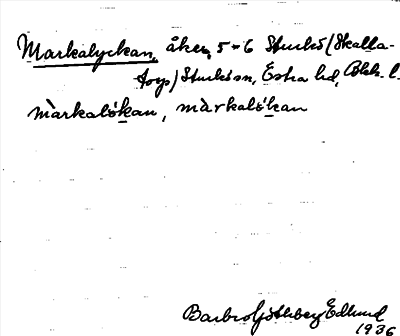 Markalyckan, åker, 5-6 Sturkö (Skalla-
torp) Sturkö sn, Östra hd, Blek. l.
màrkalökan, màrkalökan
Barbro Göthberg Edlund
1936